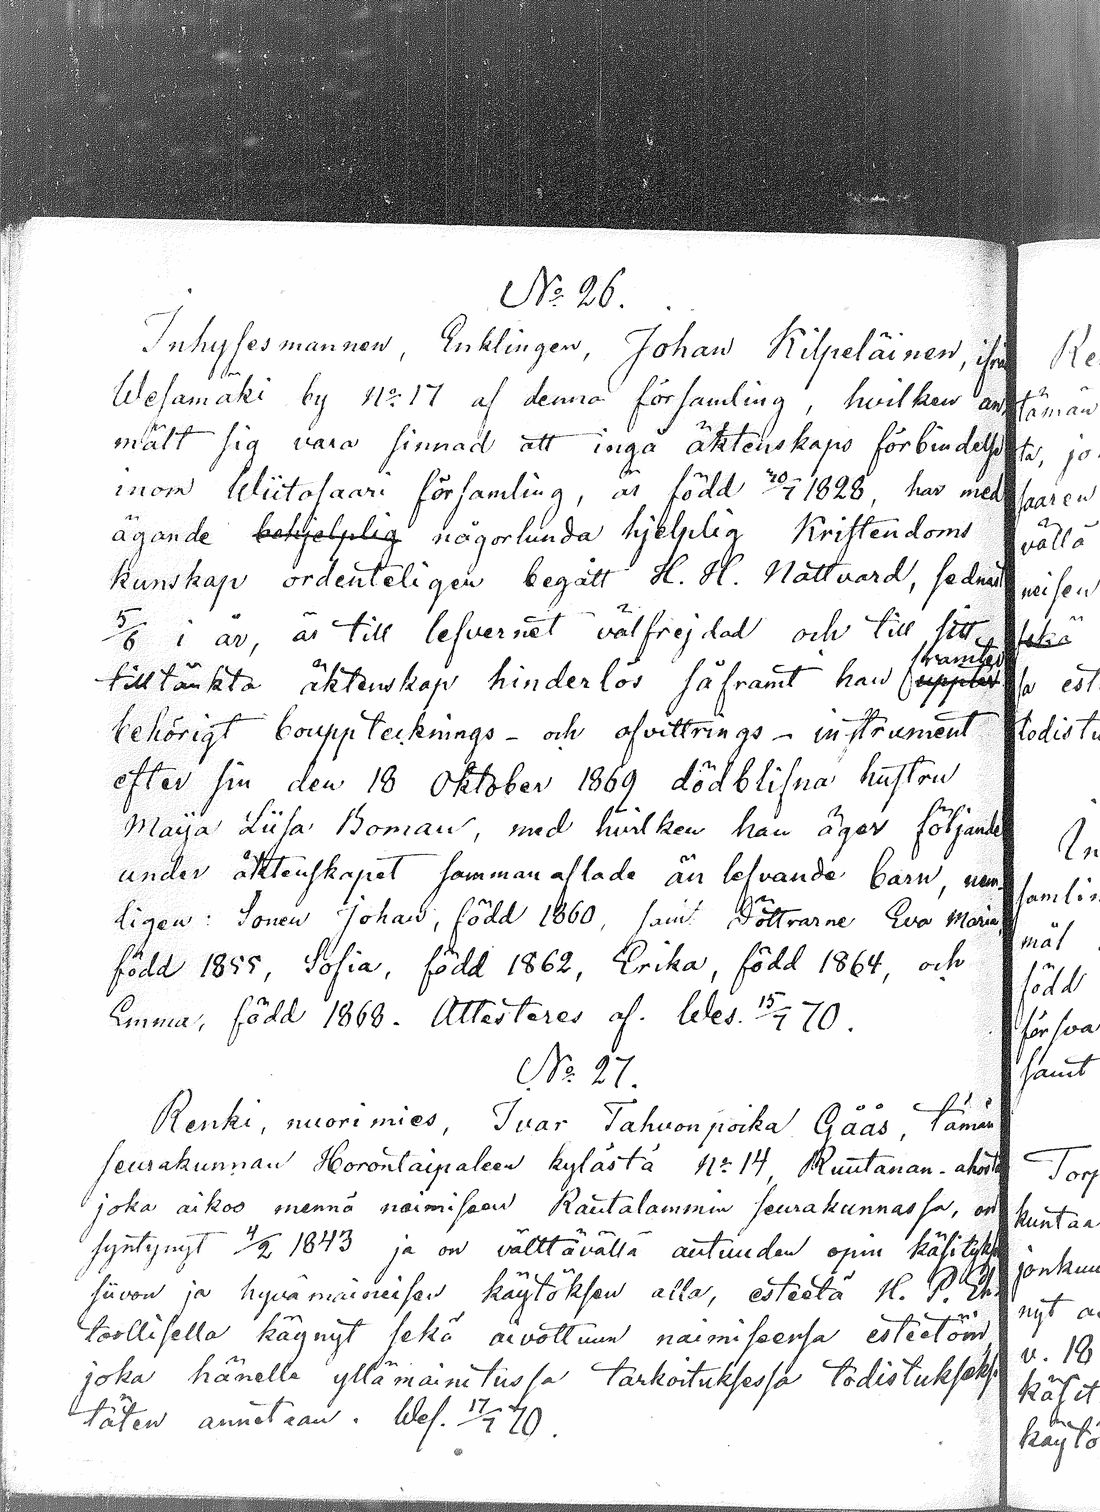 No 26.
Inhysesmannen, Enklingen, Johan Kilpeläinen, ifrån
Wesamäki by No 17 af denna församling, hvilken an-
mält sig vara sinnad att ingå äktenskaps förbindelse
inom Wiitasaari församling, är född 20/7 1828, har med
ägande behjelplig någorlunda hjelplig Kristendoms
kunskap ordenteligen begått H. H. Nattvard, sednast
5/6 i år, är till lefvernet välfrejdad och till sitt
tilltänkta äktenskap hinderlös såframt han framter
uppter
behörigt boupptecknings- och afvittrings-instrument
efter sin den 18 Oktober 1869 dödblifna hustru
Maija Liisa Boman, med hvilken han äger följande
under äktenskapet sammanaflade än lefvande barn, nem-
ligen: Sonen Johan, född 1860, samt Döttrarne Eva Maria,
född 1855, Sofia, född 1862, Erika, född 1864, och
Emma, född 1868. Attesteres af. Wes. 15/7 70.
No 27.
Renki, nuorimies, Ivar Tahvonpoika Gåås, tämän
seurakunnan Horontaipaleen kylästä No 14, Ruutanan-aholta
joka aikoo mennä naimiseen Rautalammin seurakunnassa, on
syntynyt 4/2 1843 ja on välttävällä autuuden opin käsityksen
siivon ja hyvämaineisen käytöksen alla, esteetä H. P. Eh-
toollisella käynyt sekä aivottuun naimiseensa esteetöin,
joka hänelle yllämainitussa tarkoituksessa todistukseksi
täten annetaan. Wes. 17/7 70.
Re
tämän
ta, jo
saaren
vällä
neisen
sekä
sa est
todistu
In
samlin
mäl
född
försva
samt
Torp
kuntaa
jonkun
nyt
v. 18
käsit
käytö